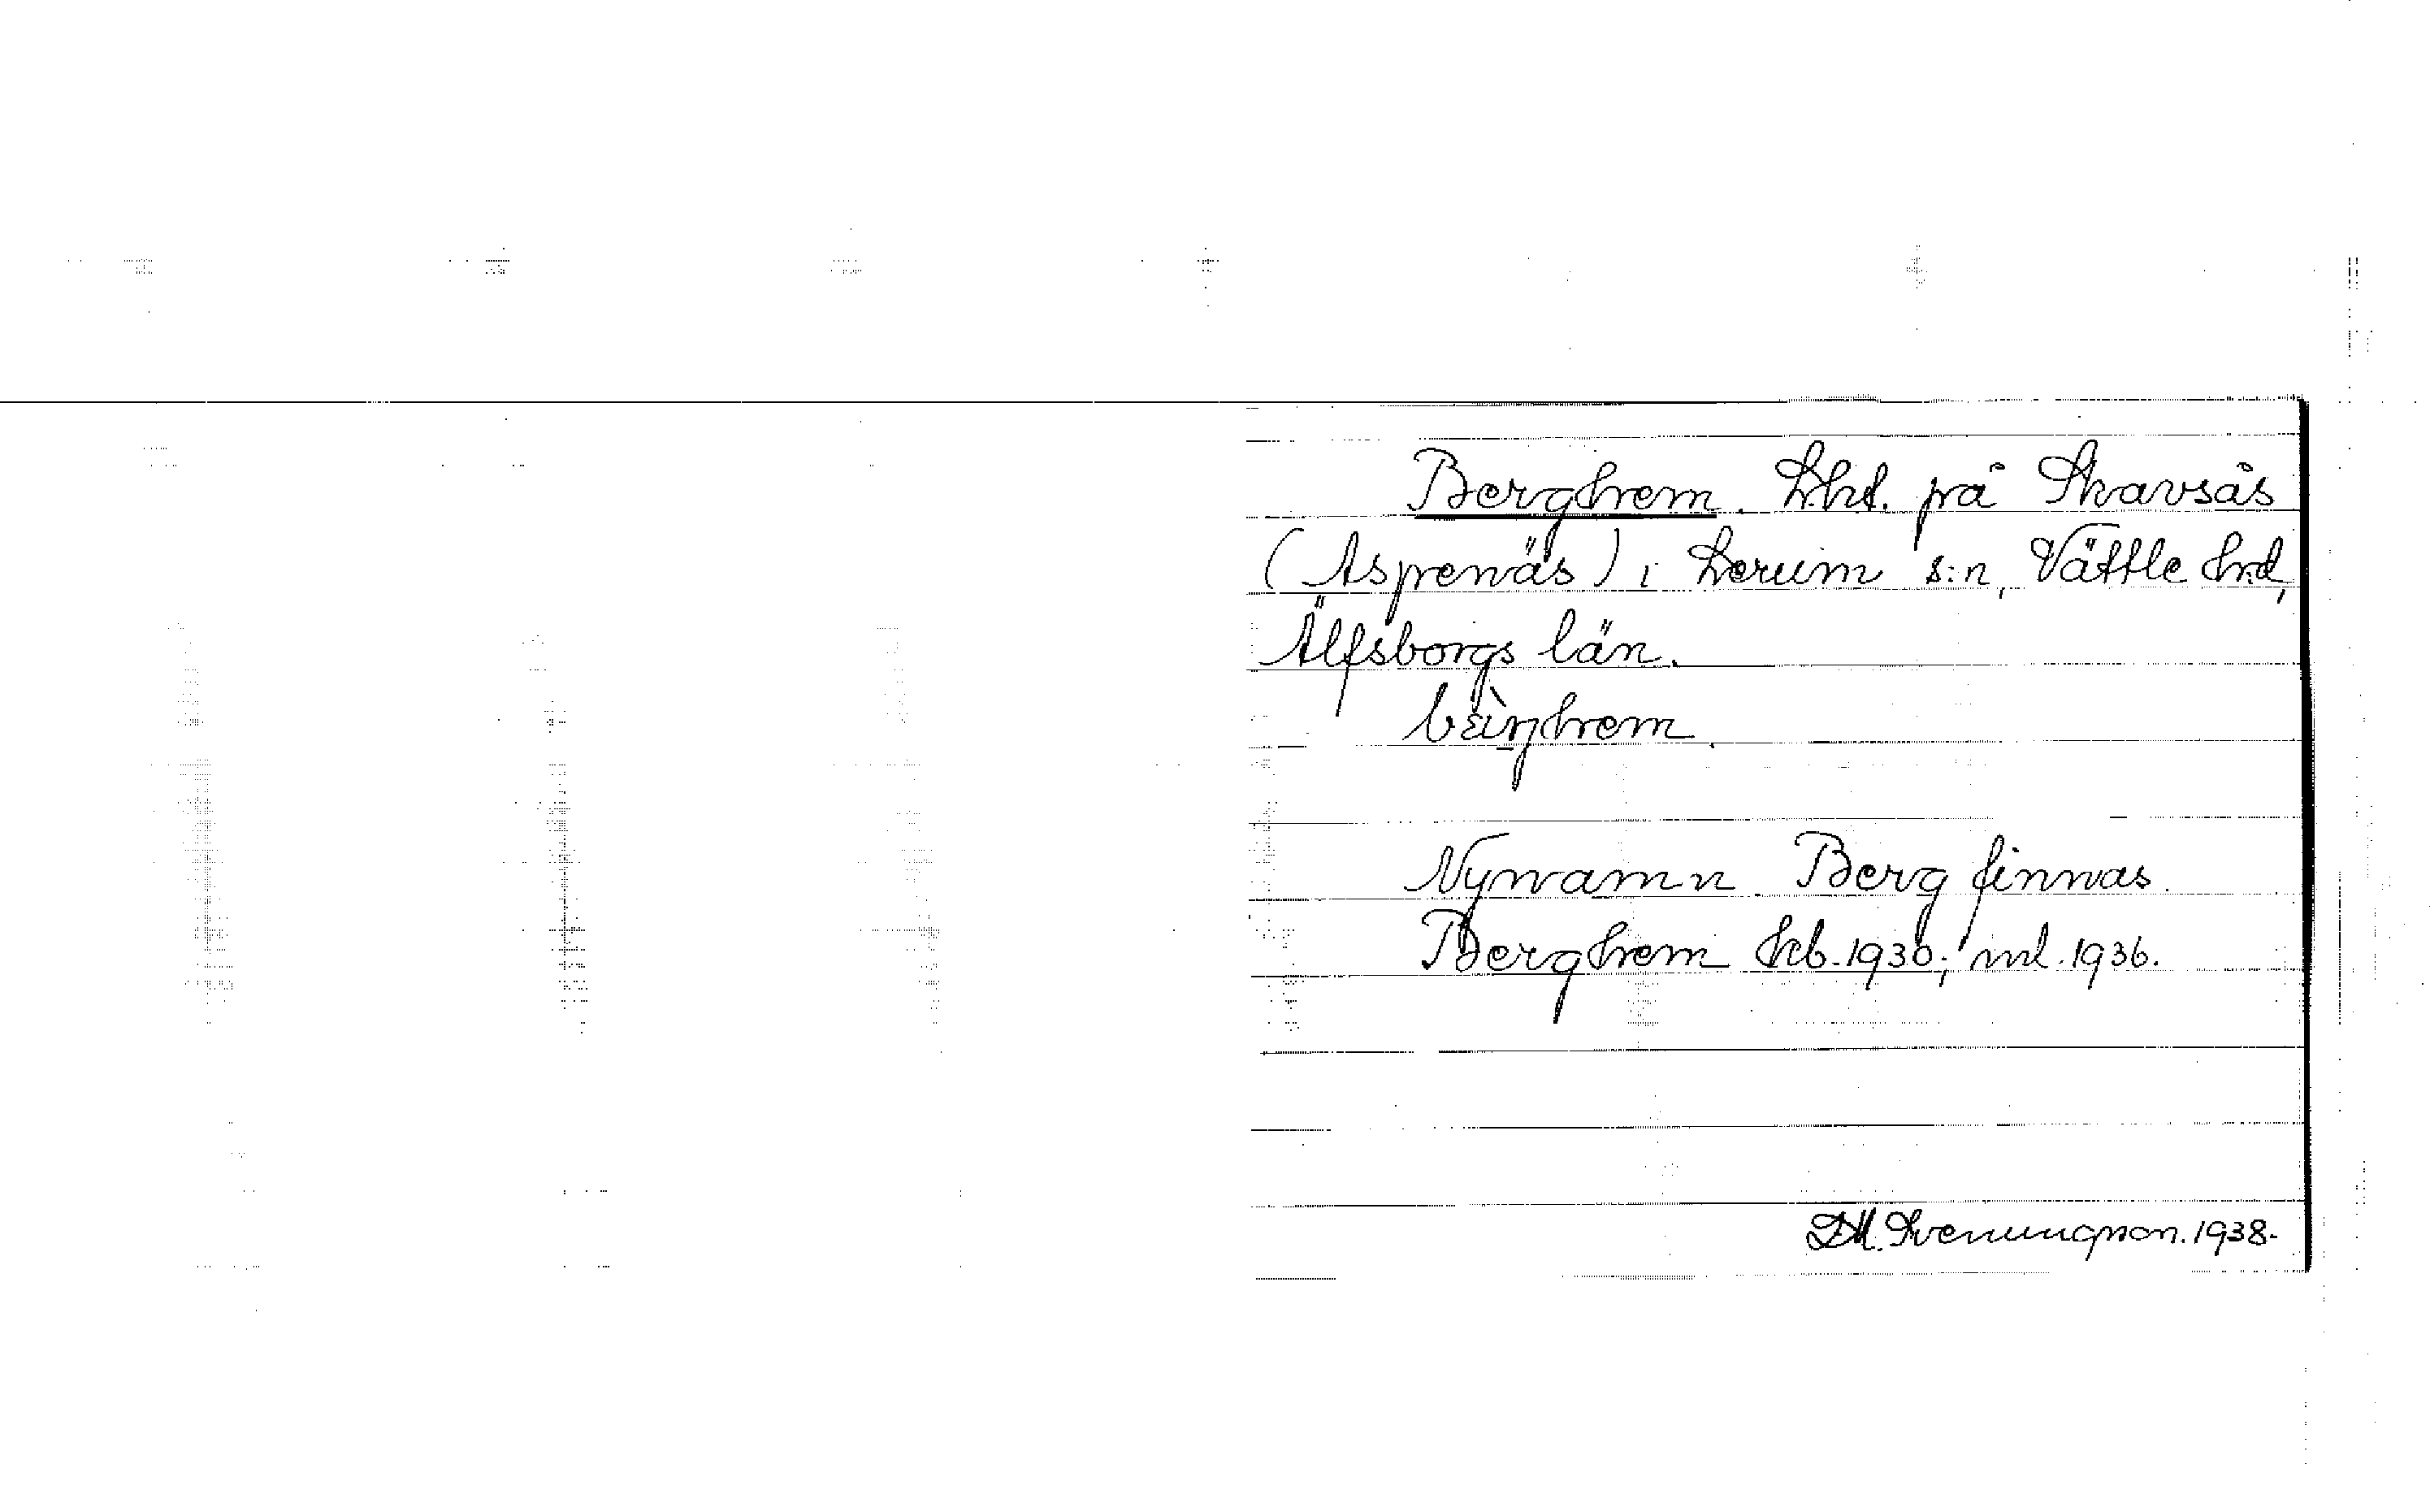 Berghem. Lht. på Skavsås
(Aspenäs) i Lerum s:n, Vättle hd,
Älfsborgs län.
Nynamn Berg finnas.
Berghem hfb. 1930; ml. 1936.
D.M. Svenungsson. 1938.